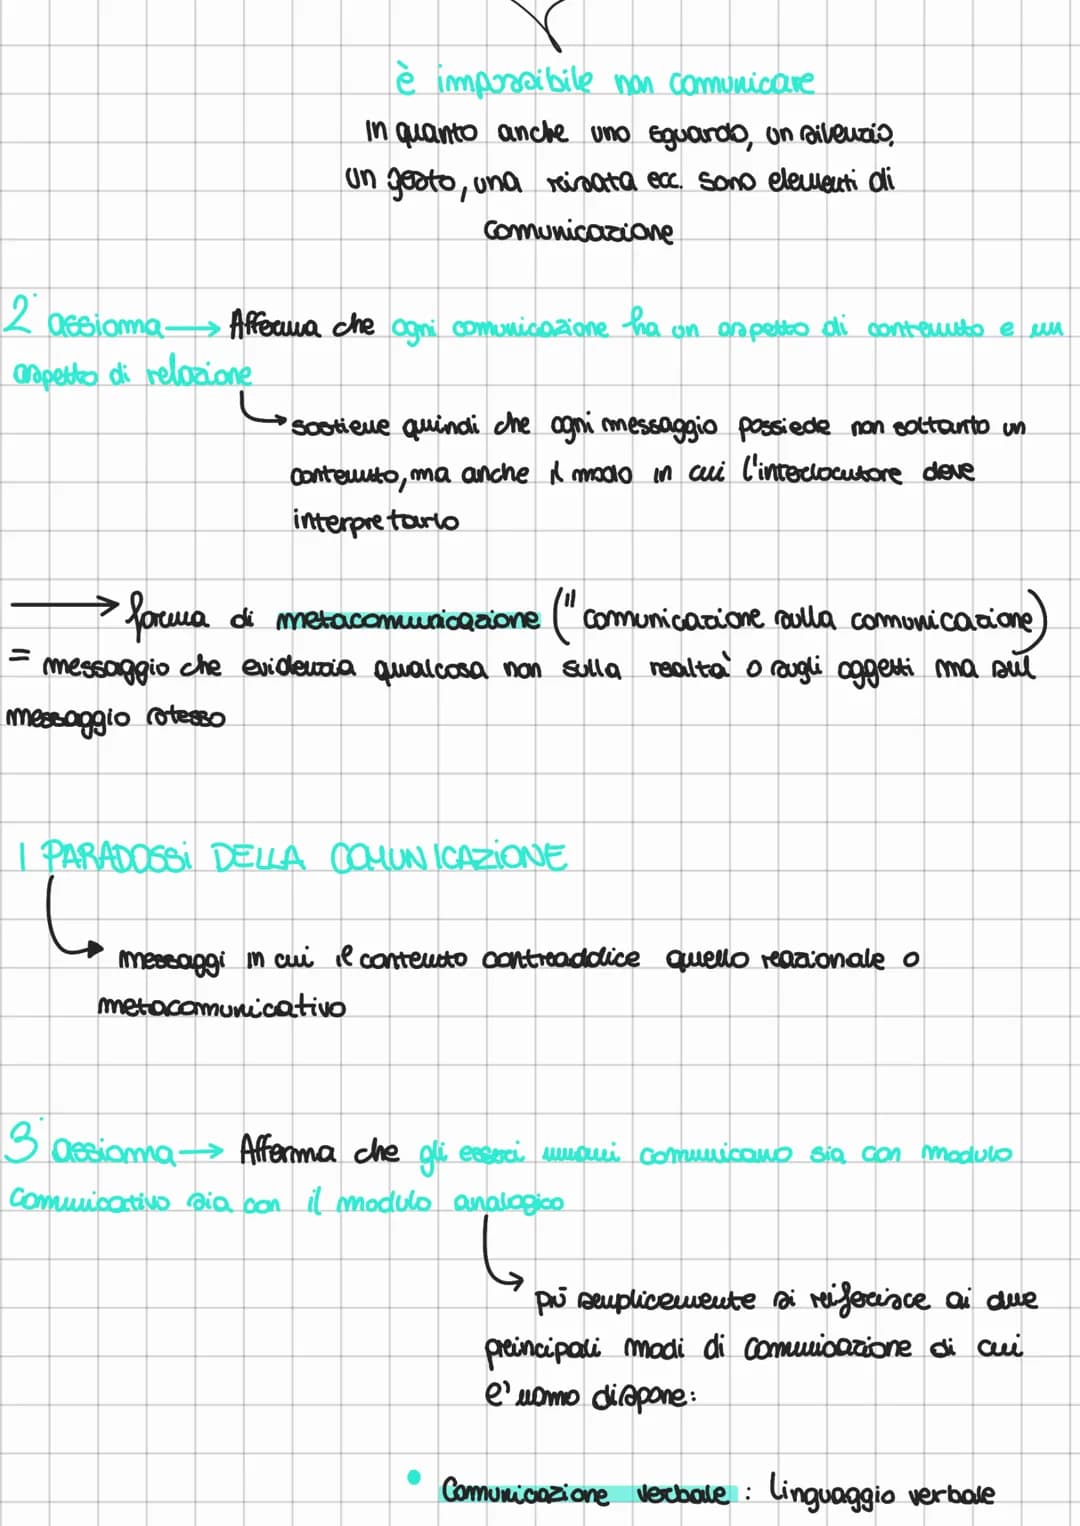 è impossibile non comunicare
In quanto anche uno sguardo, un silenzio,
un gesto, una risata ecc. sono elementi di
comunicazione
2° assioma → Afferma che ogni comunicazione ha un aspetto di contenuto e un
aspetto di relazione
sostiene quindi che ogni messaggio possiede non soltanto un
contenuto, ma anche il modo in cui l'interlocutore deve
interpretarlo
→ forma di metacomunicazione ("comunicazione sulla comunicazione)
= messaggio che evidenzia qualcosa non sulla realtà o sugli oggetti ma sul
messaggio stesso
I PARADOSSI DELLA COMUNICAZIONE
messaggi in cui il contenuto contraddice quello reazionale o
metacomunicativo
3° assioma → Afferma che gli esseri umani comunicano sia con modulo
comunicativo sia con il modulo analogico
più semplicemente si riferisce ai due
principali modi di comunicazione di cui
l'uomo dispone:
• Comunicazione verbale : linguaggio verbale